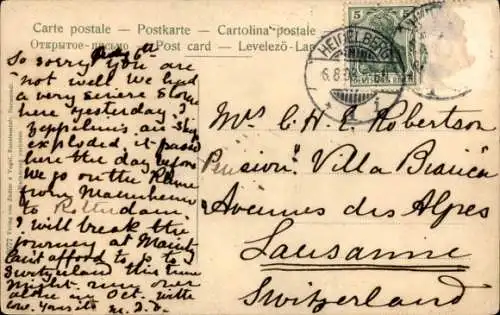 Carte postale – Postkarte – Cartolina postale
Открытое письмо – Post card – Levelező-La
So sorry you are
not well we had
a very severe storm
here yesterday
Zeppelin's air ship
exploded, it passed
here the day before
We go on the Rhine
from Mannheim
to Rotterdam
I will break the
journey at
can't afford to go to
Switzerland this time
might run over
alone in Oct. with
love yours
5
HEIDELBERG
6.8.0
Mrs C. H. E. Robertson
Pension Villa Bianca
Avenues des Alpes
Lausanne
Switzerland